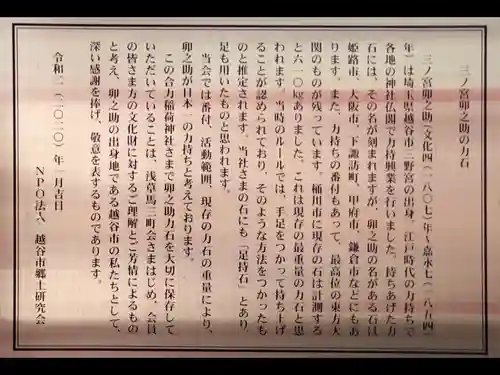 三ノ宮卯之助の力石
三ノ宮卯之助(文化四(一八〇七)年〜嘉永七(一八五四)
年)は埼玉県越谷市三野宮の出身、江戸時代の力持ちで
各地の神社仏閣で力持興業を行いました。持ちあげた力
石には、その名が刻まれますが、卯之助の名がある石は
姫路市、大阪市、下諏訪町、甲府市、鎌倉市などにもあ
ります。また、力持ちの番付もあって、最高位の東方大
関のものが残っています。桶川市に現存の石は計測する
と六一〇㎏ありました。これは現存の最重量の力石と思
われます。当時のルールでは、手足をつかって持ち上げ
ることが認められており、そのような方法をつかつたも
のと推定されます。当社さまの石にも「足持石」とあり、
足も用いたものと思われます。
当会では番付、活動範囲、現存の力石の重量により、
卯之助が日本一の力持ちと考えております。
この合力稲荷神社さまで卯之助力石を大切に保存して
いただいていることは、浅草馬三町会さまはじめ、会員
の皆さま方の文化財に対するご理解とご芳情によるもの
と考え、卯之助の出身地である越谷市の私たちとして、
深い感謝を捧げ、敬意を表するものであります。
令和二(二〇二〇)年一月吉日
NPO法人 越谷市郷土研究会